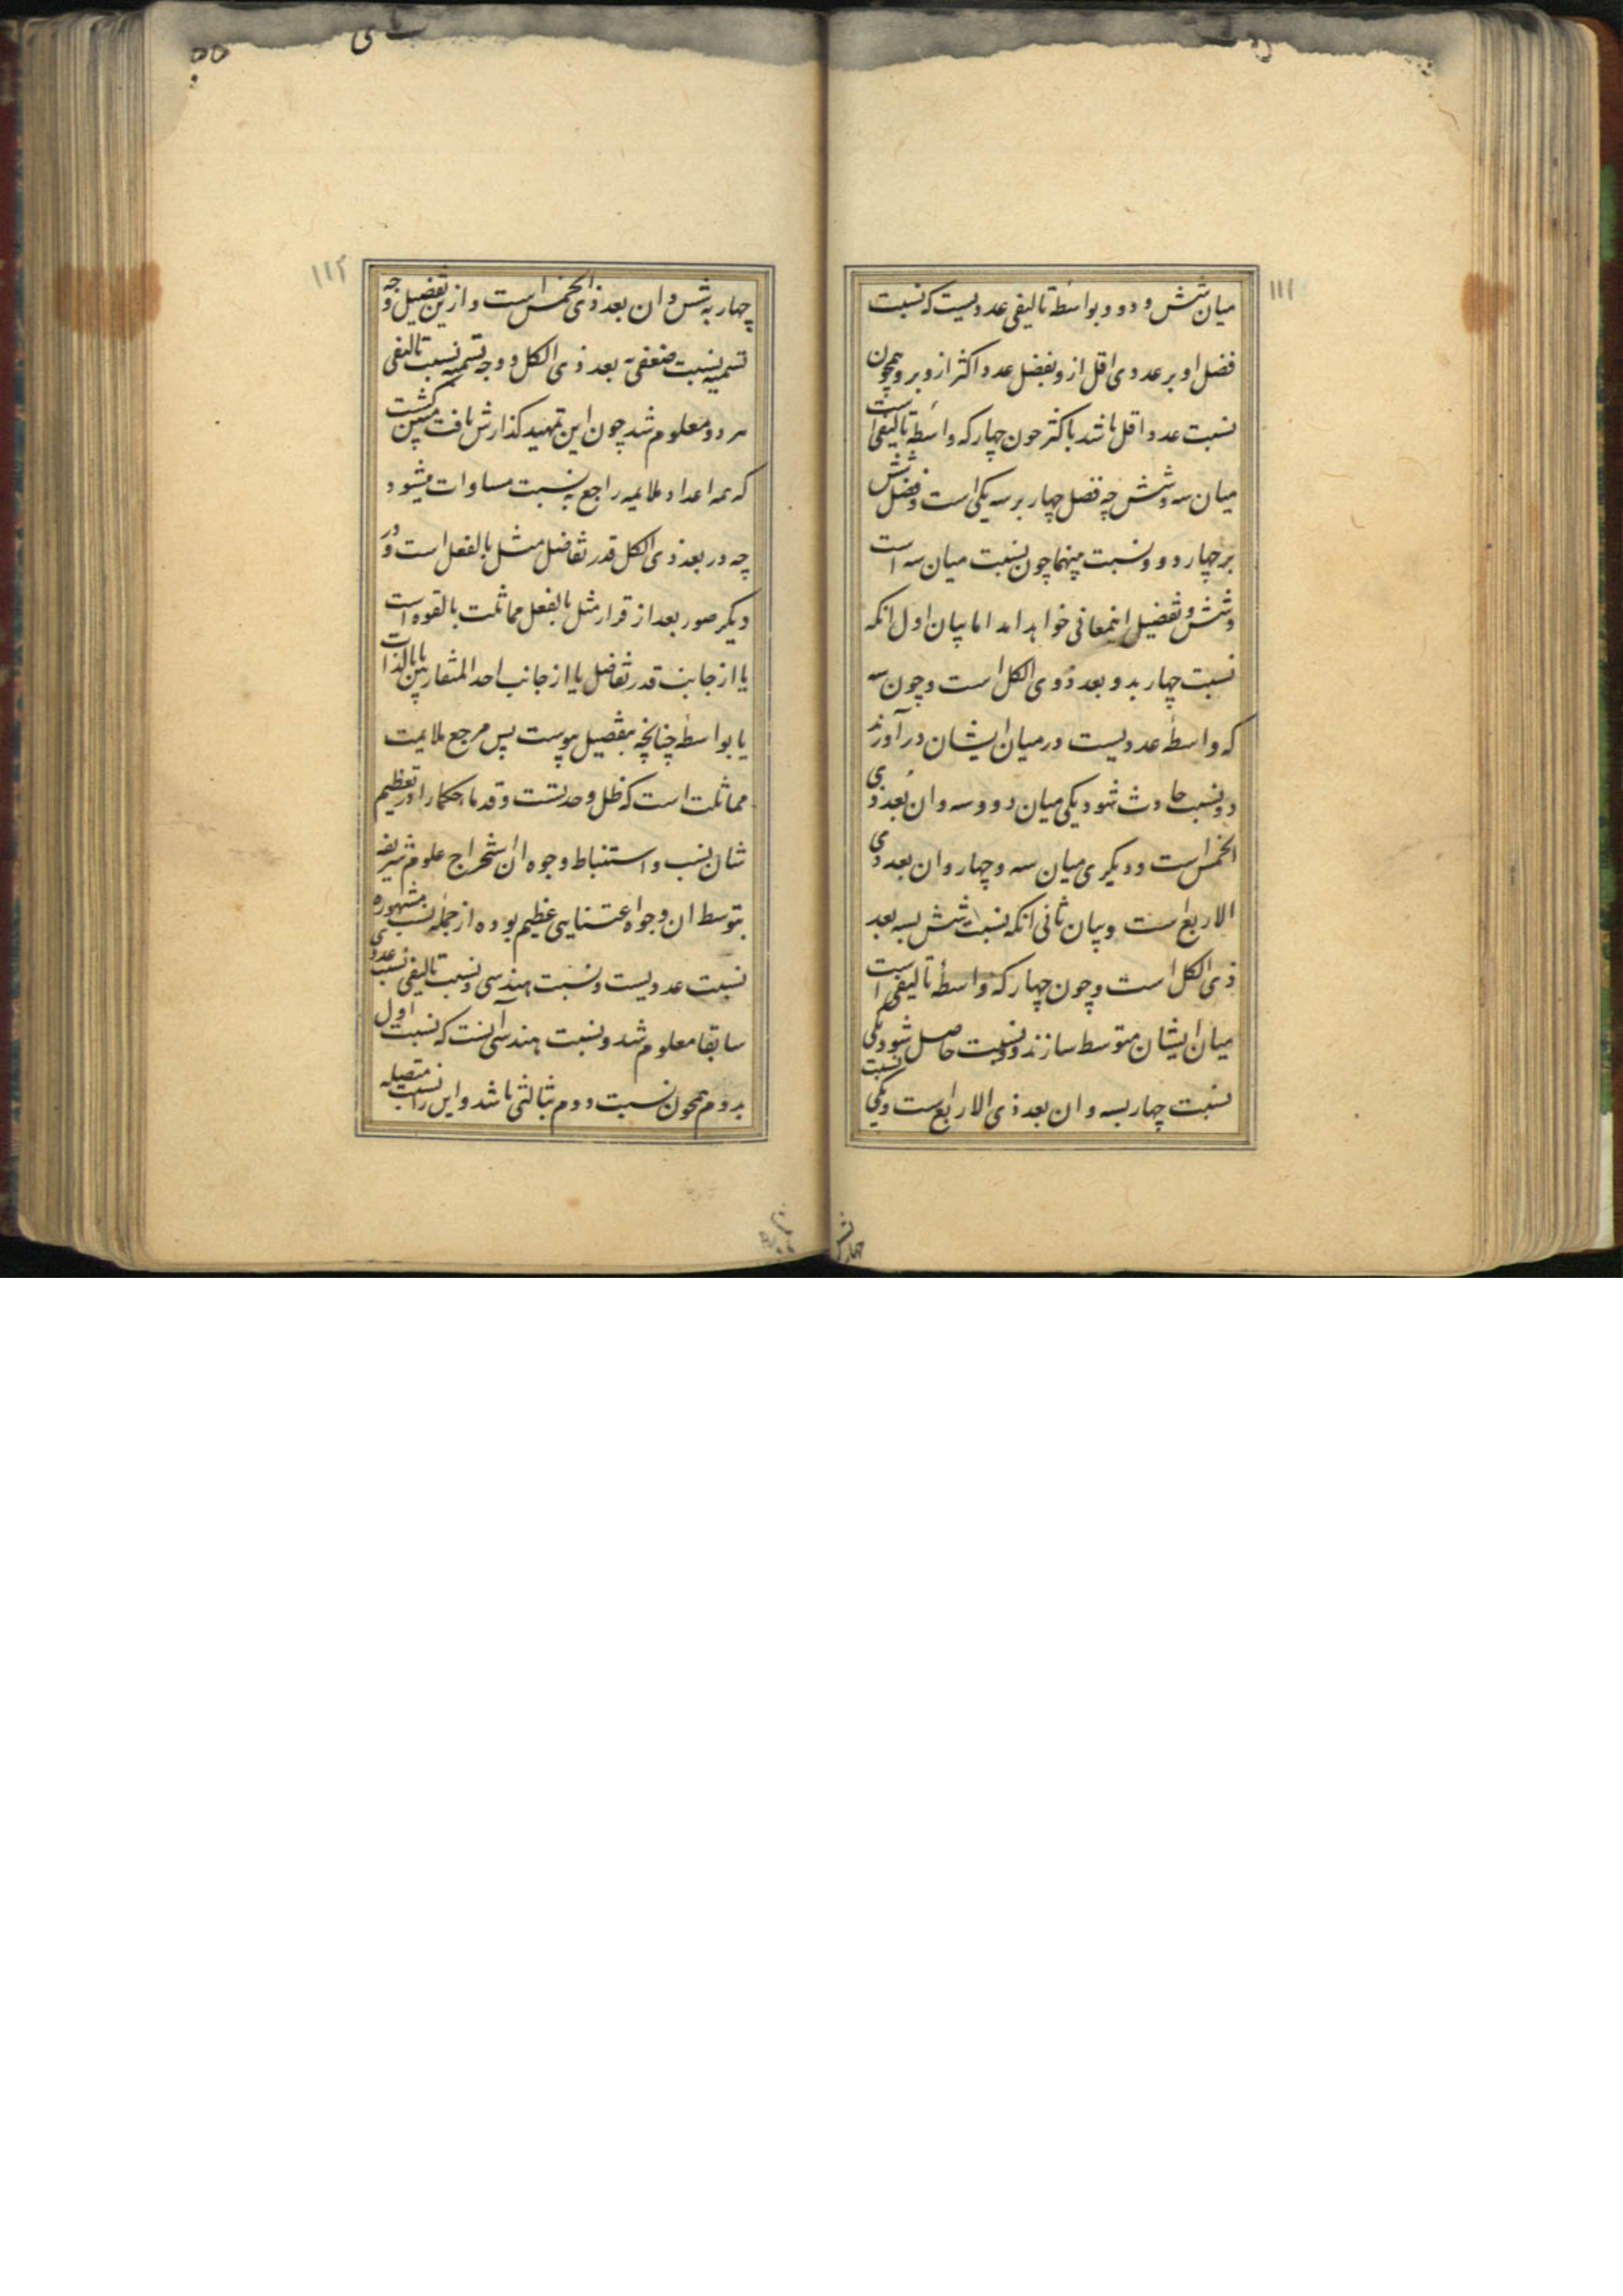 ۱۱۱
میان شش و دو و بواسطهٔ تالیفی عددیست که نسبت
فضل او بر عددی اقل ازو بفضل عدد اکثر ازو برو همچون
نسبت عدد اقل باشد باکثر چون چهار که واسطهٔ تالیفی است
میان سه و شش چه فضل چهار بر سه یکی است و فضل شش
بر چهار دو و نسبت بینهما چون نسبت میان سه است
و شش و تفضیل اینمعانی خواهد امد اما بیان اول انکه
نسبت چهار بدو بعد ذوی الکل است و چون سه
که واسطهٔ عددیست در میان ایشان در آورند
دو نسبت حادث شود یکی میان دو و سه و ان بُعد ذی
الخمس است و دیگری میان سه و چهار و ان بعد ذی
الاربع است و بیان ثانی انکه نسبت شش بسه بعد
ذی الکل است و چون چهار که واسطهٔ تالیفی است
میان ایشان متوسط سازند دو نسبت حاصل شود یکی
نسبت چهار بسه و ان بعد ذی الاربع است و یکی نسبت
۱۱۲
چهار به شش و ان بعد ذی الخمس است و ازین تفضیل وجه
تسمیه نسبت ضعفی به بعد ذی الکل و وجه تسمیه نسبت تالیفی
هر دو معلوم شد چون این تمهید کذارش یافت مبین کشت
که همه اعداد ملایمه راجع به نسبت مساوات میشود
چه در بعد ذی الکل قدر تفاضل مثل بالفعل است و در
دیکر صور بعد از قرار مثل بالفعل مماثلت بالقوه است
یا از جانب قدر تفاضل یا از جانب احد المتقاربین یا بالذات
یا بواسطه چنانچه بتفصیل پیوست پس مرجع ملایمت
مماثلت است که ظل وحدتست و قدماء حکما را در تعظیم
شان نسب و استنباط وجوه ان استخراج علوم شریفه
بتوسط ان وجوه اعتنایی عظیم بوده از جمله نسب مشهوره
نسبت عددیست و نسبت هندسی و نسبت تالیفی نسبت عددی
سابقا معلوم شد و نسبت هندسی آنست که نسبت اول
بدوم همچون نسبت دوم بثالثی باشد و این را نسبت متصله